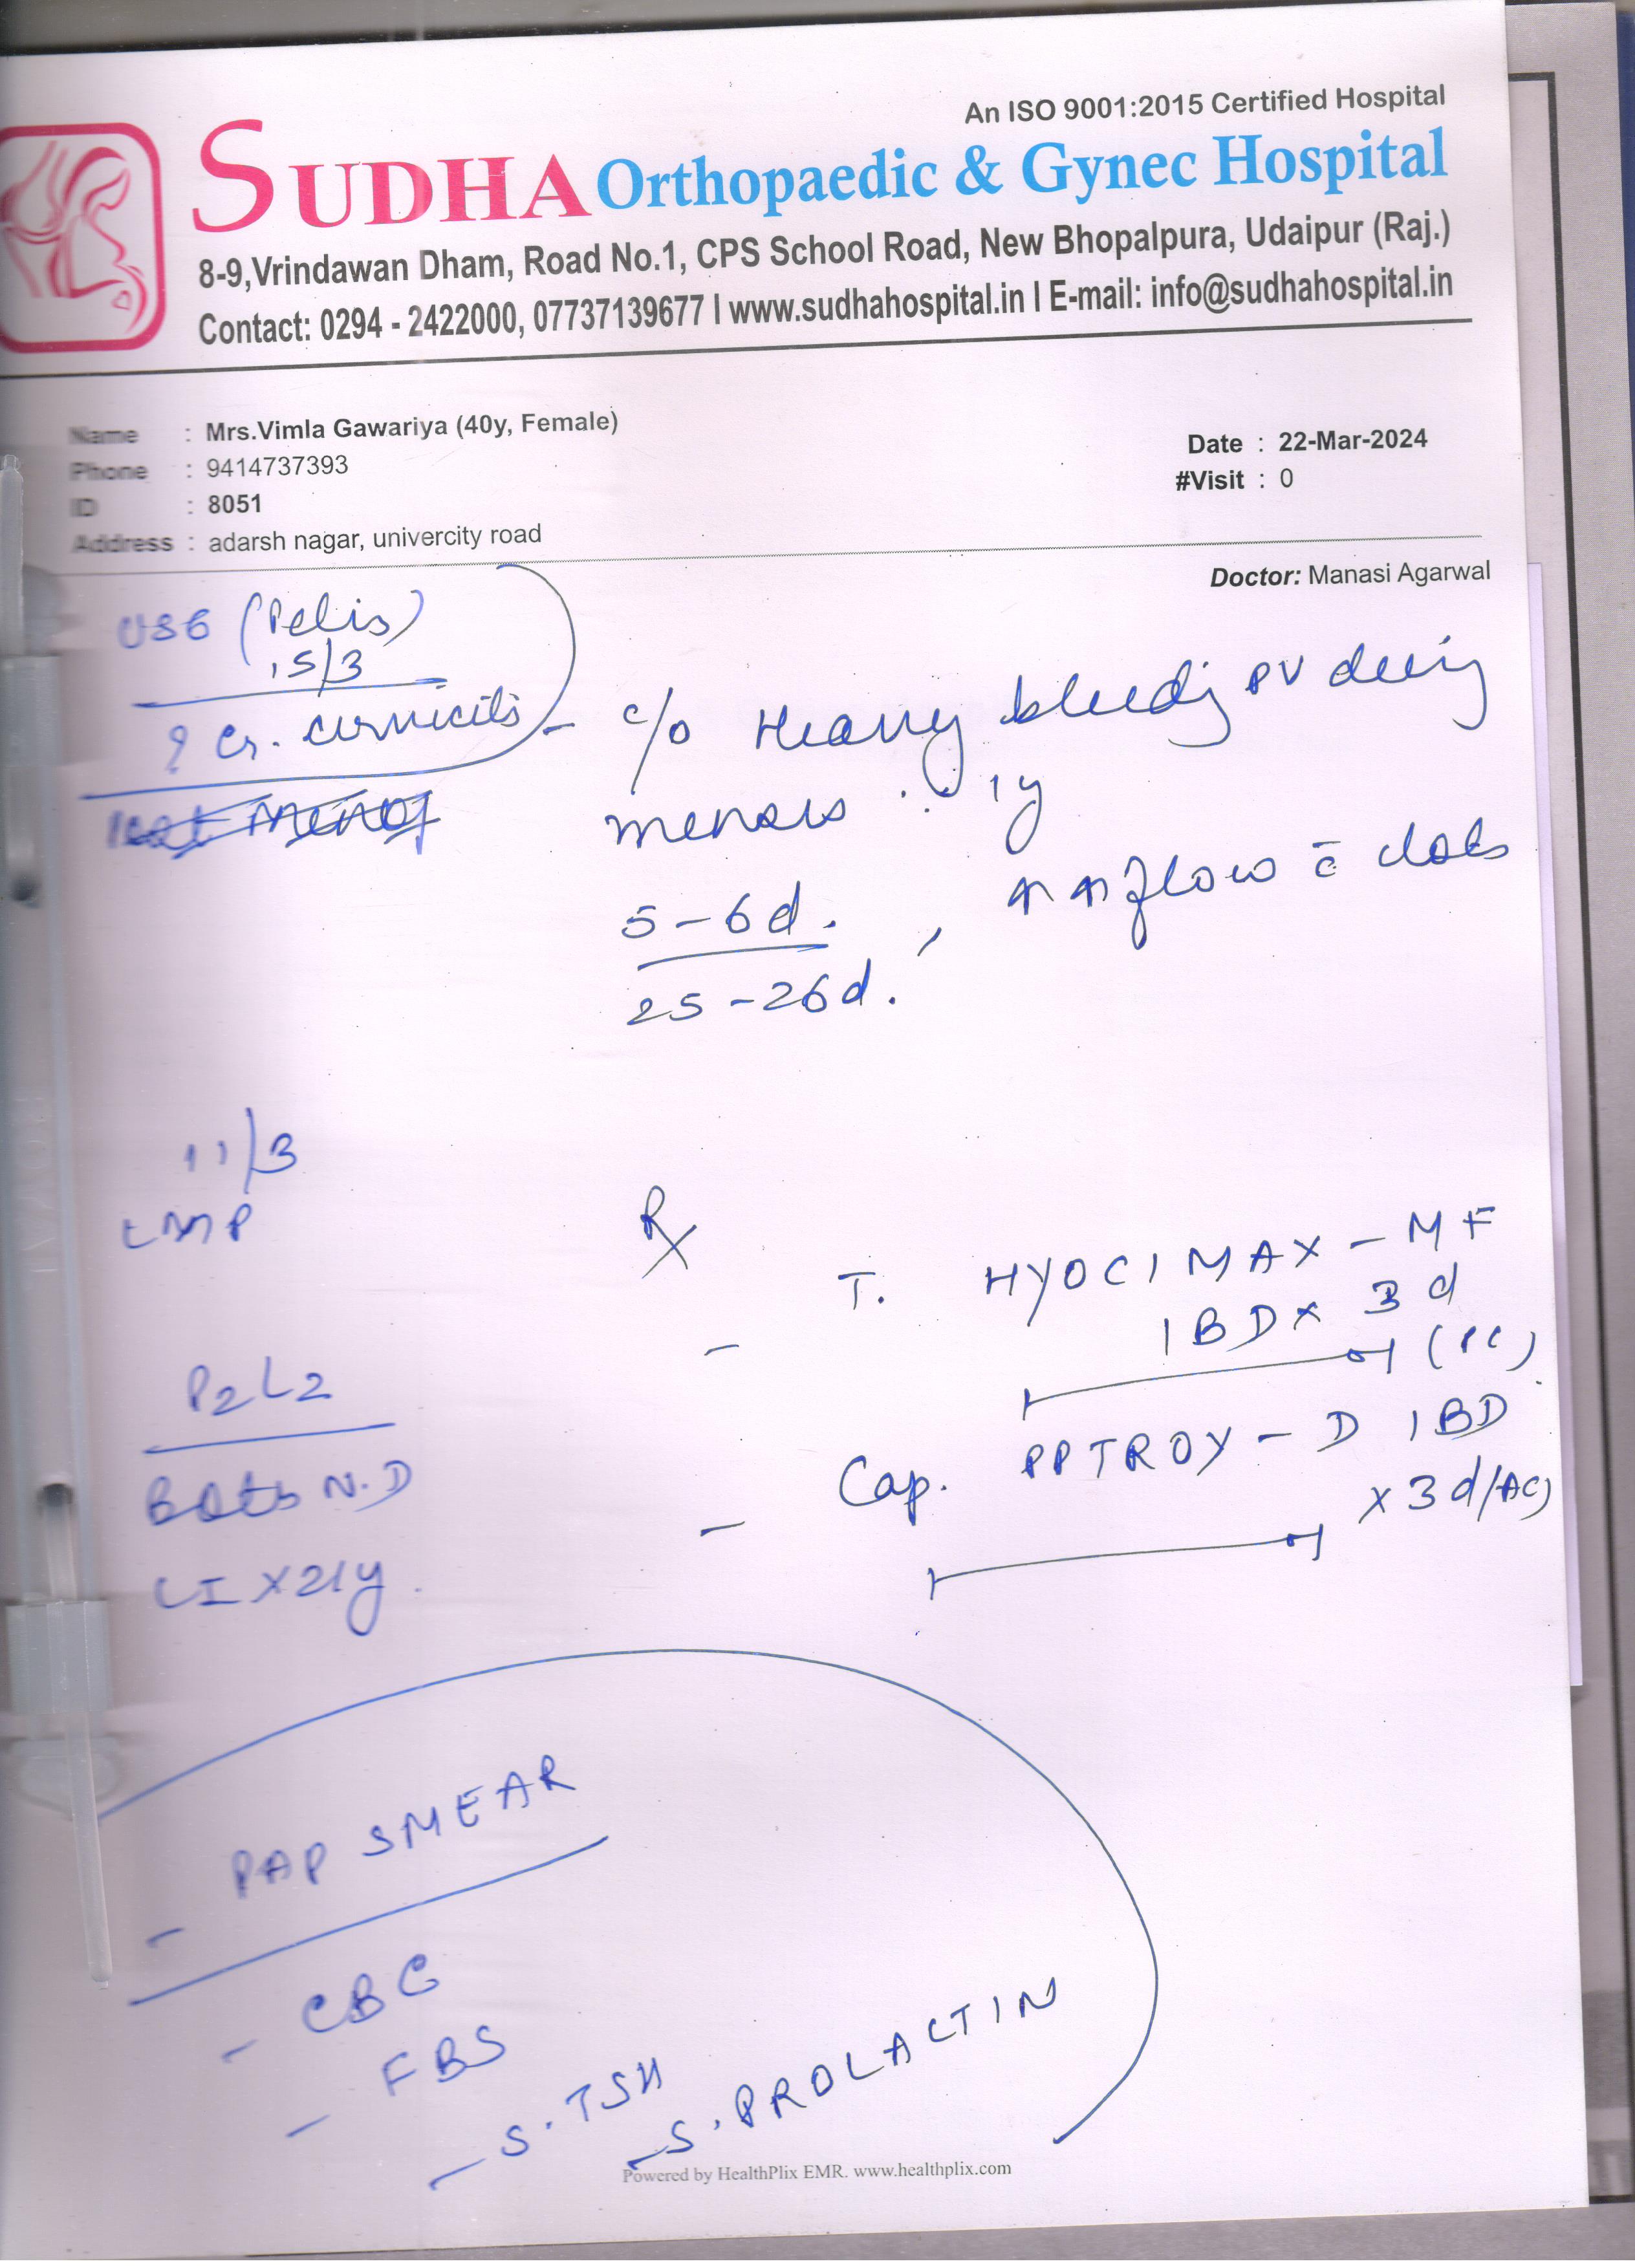 An ISO 9001:2015 Certified Hospital
SUDHA Orthopaedic & Gynec Hospital
8-9,Vrindawan Dham, Road No.1, CPS School Road, New Bhopalpura, Udaipur (Raj.)
Contact: 0294 - 2422000, 07737139677 I www.sudhahospital.in I E-mail: info@sudhahospital.in
Name : Mrs.Vimla Gawariya (40y, Female)
Phone : 9414737393
ID : 8051
Address : adarsh nagar, univercity road
Date : 22-Mar-2024
#Visit : 0
Doctor: Manasi Agarwal
USG (Pelvis)
15/3
? Cr. cervicitis
- c/o Heavy bleeding PV during
menses : 1y
5-6d.
25-26d.
, ↑↑flow c̄ clots
11/3
LMP
Rx
- T. HYOCIMAX - MF
1BD x 3d
(PC)
P2L2
Both N.D
LI x 21y.
- Cap. PPTROY - D 1BD
x 3d/AC)
- PAP SMEAR
- CBC
- FBS
- S. TSH
- S. PROLACTIN
Powered by HealthPlix EMR. www.healthplix.com